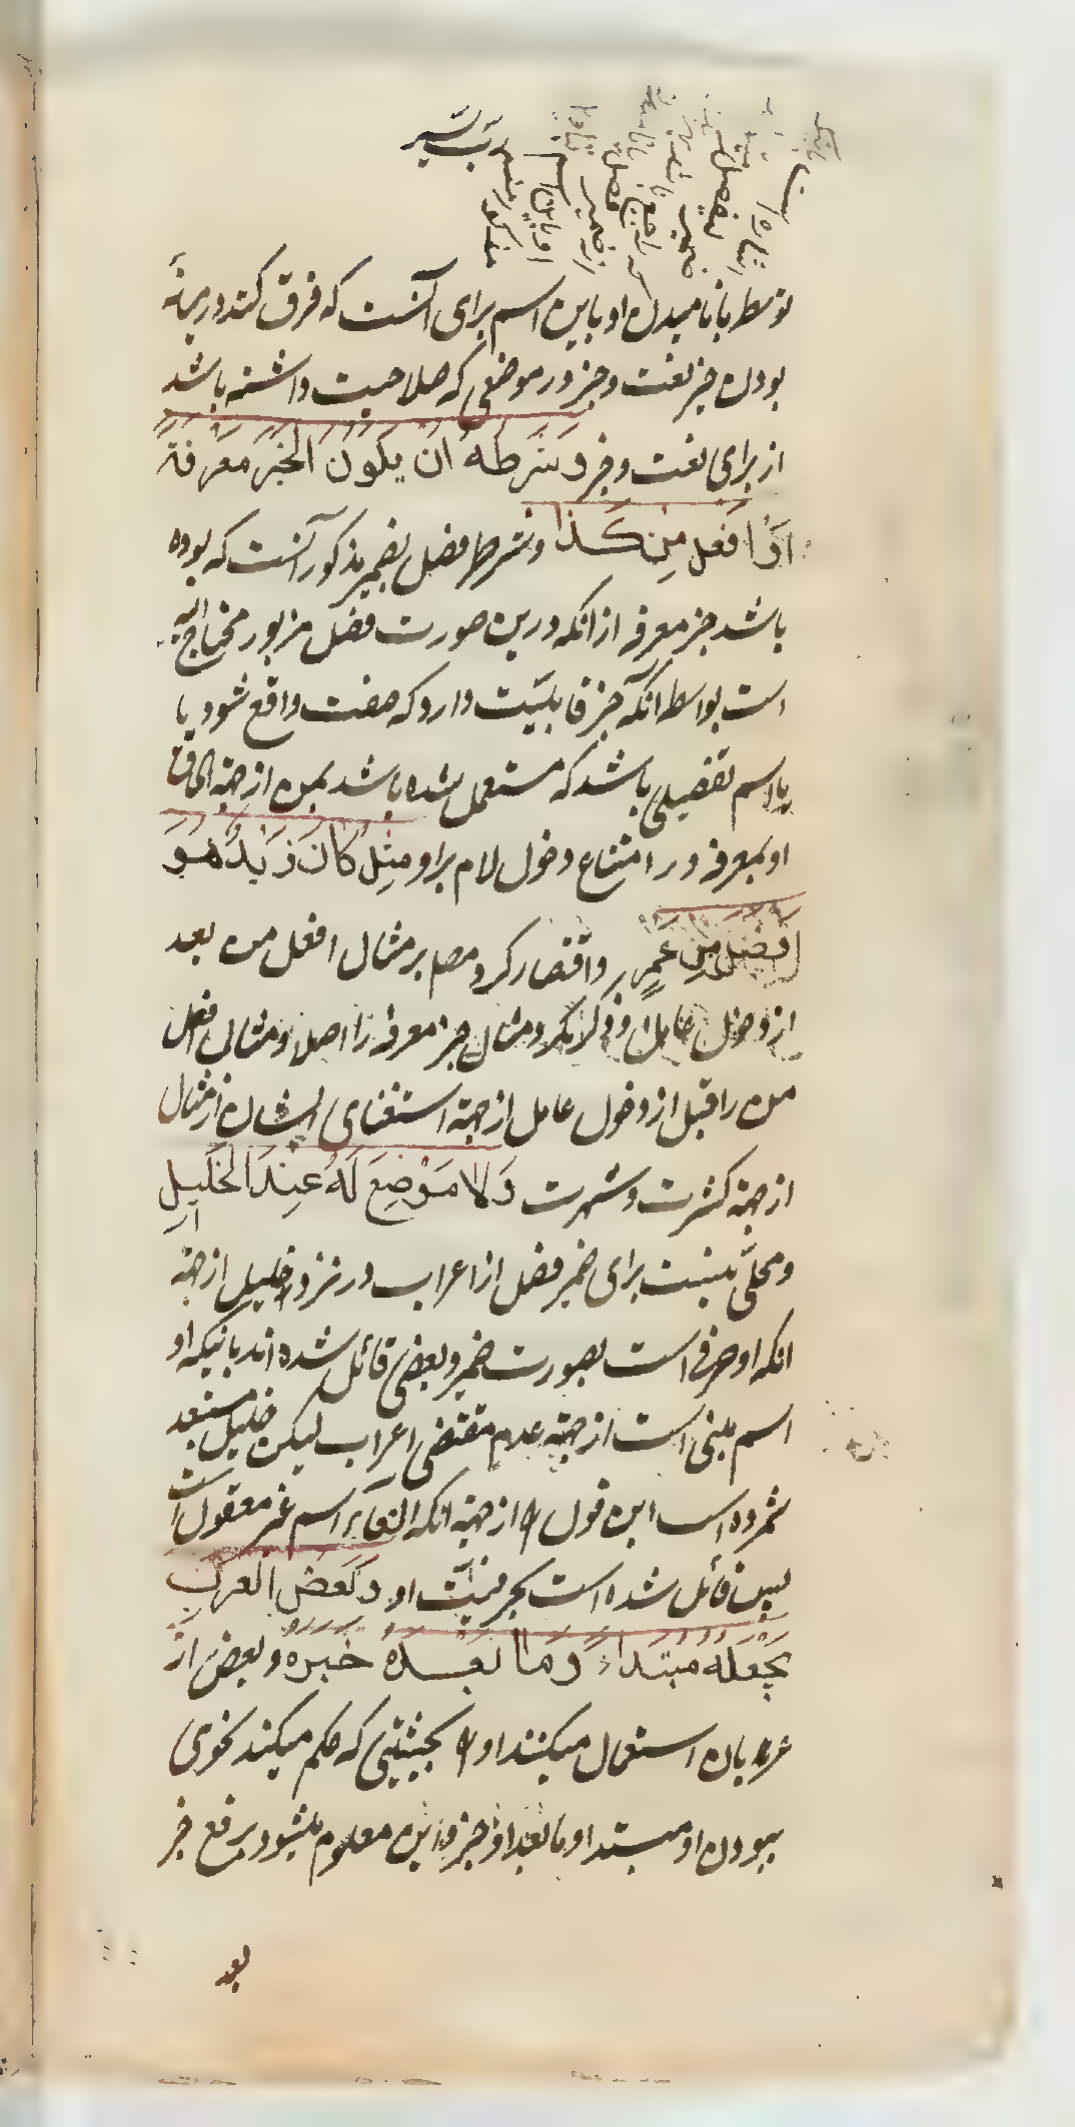 توسط بانا میدن او باین اسم برای آنست که فرق کند در میانه
بودن خبر نعت و خبر در موضعی که صلاحیت داشته باشد
از برای نعت و خبر وَشَرطُهُ اَنْ یَکُونَ الخَبَرُ مَعرِفَةً
اَوْ اَفعَلَ مِنْ کَذَا و شرط فصل بضمیر مذکور آنست که بوده
باشد خبر معرفه از انکه درین صورت فصل مزبور محتاج الیه
است بواسطه انکه خبر قابلیّت دارد که صفت واقع شود یا
یا اسم تفضیلی باشد که مستعمل شده باشد بمن از جهة الحاق
او بمعرفه در امتناع دخول لام برا و مِثلُ کَانَ زَیدٌ هُوَ
اَفضَلَ مِنْ عَمرٍو و اقتصار کرد مص بر مثال افعل من بعد
از دخول عامل و ذکر نکرد مثال خبر معرفه را اصلا و مثال افعل
من را قبل از دخول عامل از جهة استغنای ایشان از مثال
از جهة کثرت و شهرت وَلا مَوْضِعَ لَهُ عِنْدَ الخَلِیلِ
و محلّی نیست برای ضمیر فصل از اعراب در نزد خلیل از جهة
انکه او حرفی است بصورت ضمیر و بعضی قائل شده اند بانیکه او
اسم مبنی است از جهة عدم مقتضی اعراب لیکن خلیل مستبعد
شمرده است این قول را از جهة انکه الغاء اسم غیر معقول است
پس قائل شده است بحرفیّت او وَبَعضُ العَرَبِ
یَجعَلُهُ مُبتَدَاءً وَمَا بَعْدَهُ خَبَرَهُ و بعض از
عربان استعمال میکنند او را بحیثیتی که حکم میکند نحوی
ببودن او مبتدا و ما بعد او خبر و این معلوم میشود برفع خبر
بعد